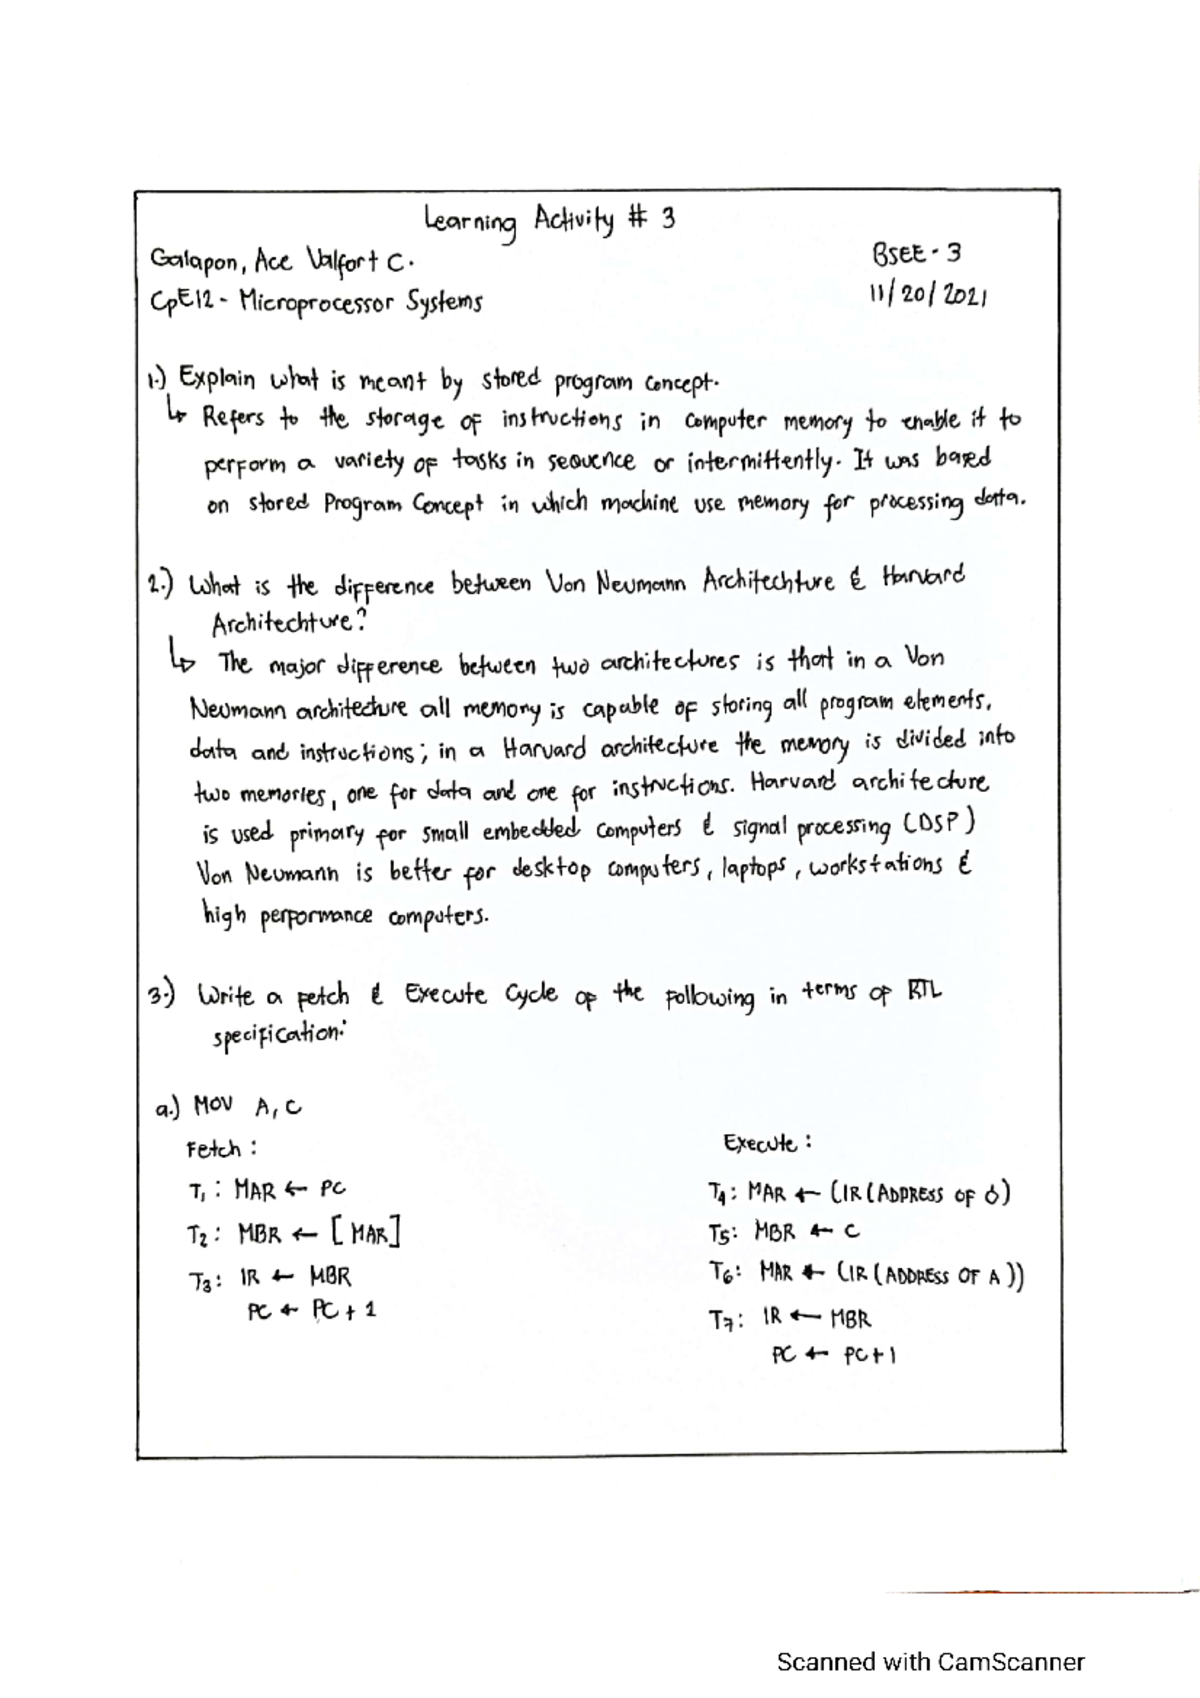 Learning Activity # 3
Galapon, Ace Valfort C.
BSEE - 3
CpE12 - Microprocessor Systems
11/20/2021
1.) Explain what is meant by stored program concept.
↳ Refers to the storage of instructions in computer memory to enable it to
perform a variety of tasks in sequence or intermittently. It was based
on stored Program Concept in which machine use memory for processing data.
2.) What is the difference between Von Neumann Architechture & Harvard
Architechture?
↳ The major difference between two architectures is that in a Von
Neumann architecture all memory is capable of storing all program elements,
data and instructions; in a Harvard architecture the memory is divided into
two memories, one for data and one for instructions. Harvard architecture
is used primary for small embedded computers & signal processing (DSP)
Von Neumann is better for desktop computers, laptops, workstations &
high performance computers.
3.) Write a fetch & Execute Cycle of the following in terms of RTL
specification:
a.) MOV A, C
Fetch :
T1 : MAR ← PC
T2 : MBR ← [MAR]
T3 : IR ← MBR
PC ← PC + 1
Execute :
T4 : MAR ← (IR (ADDRESS OF )
T5 : MBR ← C
T6 : MAR ← (IR (ADDRESS OF A))
T7 : IR ← MBR
PC ← PC + 1
Scanned with CamScanner